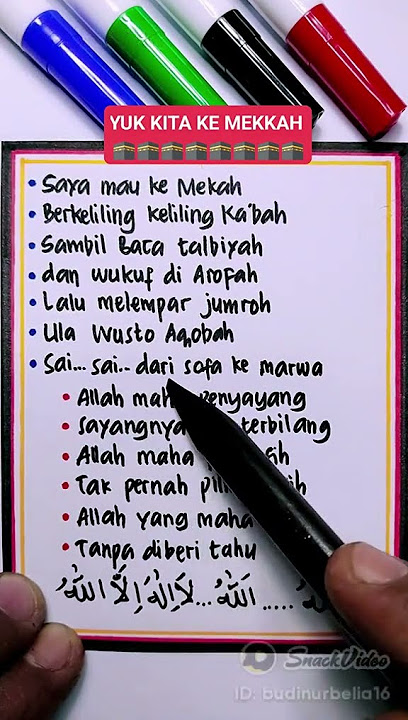 YUK KITA KE MEKKAH
🕋🕋🕋🕋🕋🕋🕋🕋
• Saya mau ke Mekah
• Berkeliling keliling Ka'bah
• Sambil Baca talbiyah
• dan wukuf di Arofah
• Lalu melempar jumroh
• Ula Wusto Aqobah
• Sai... sai.. dari sofa ke marwa
• Allah penyayang
• sayangnya terbilang
• Allah maha
• Tak pernah
• Allah yang maha
• Tanpa diberi tahu
اَللّٰهُ... لَااِلٰهَ اِلَّا اللّٰهُ
SnackVideo
ID: budinurbelia16